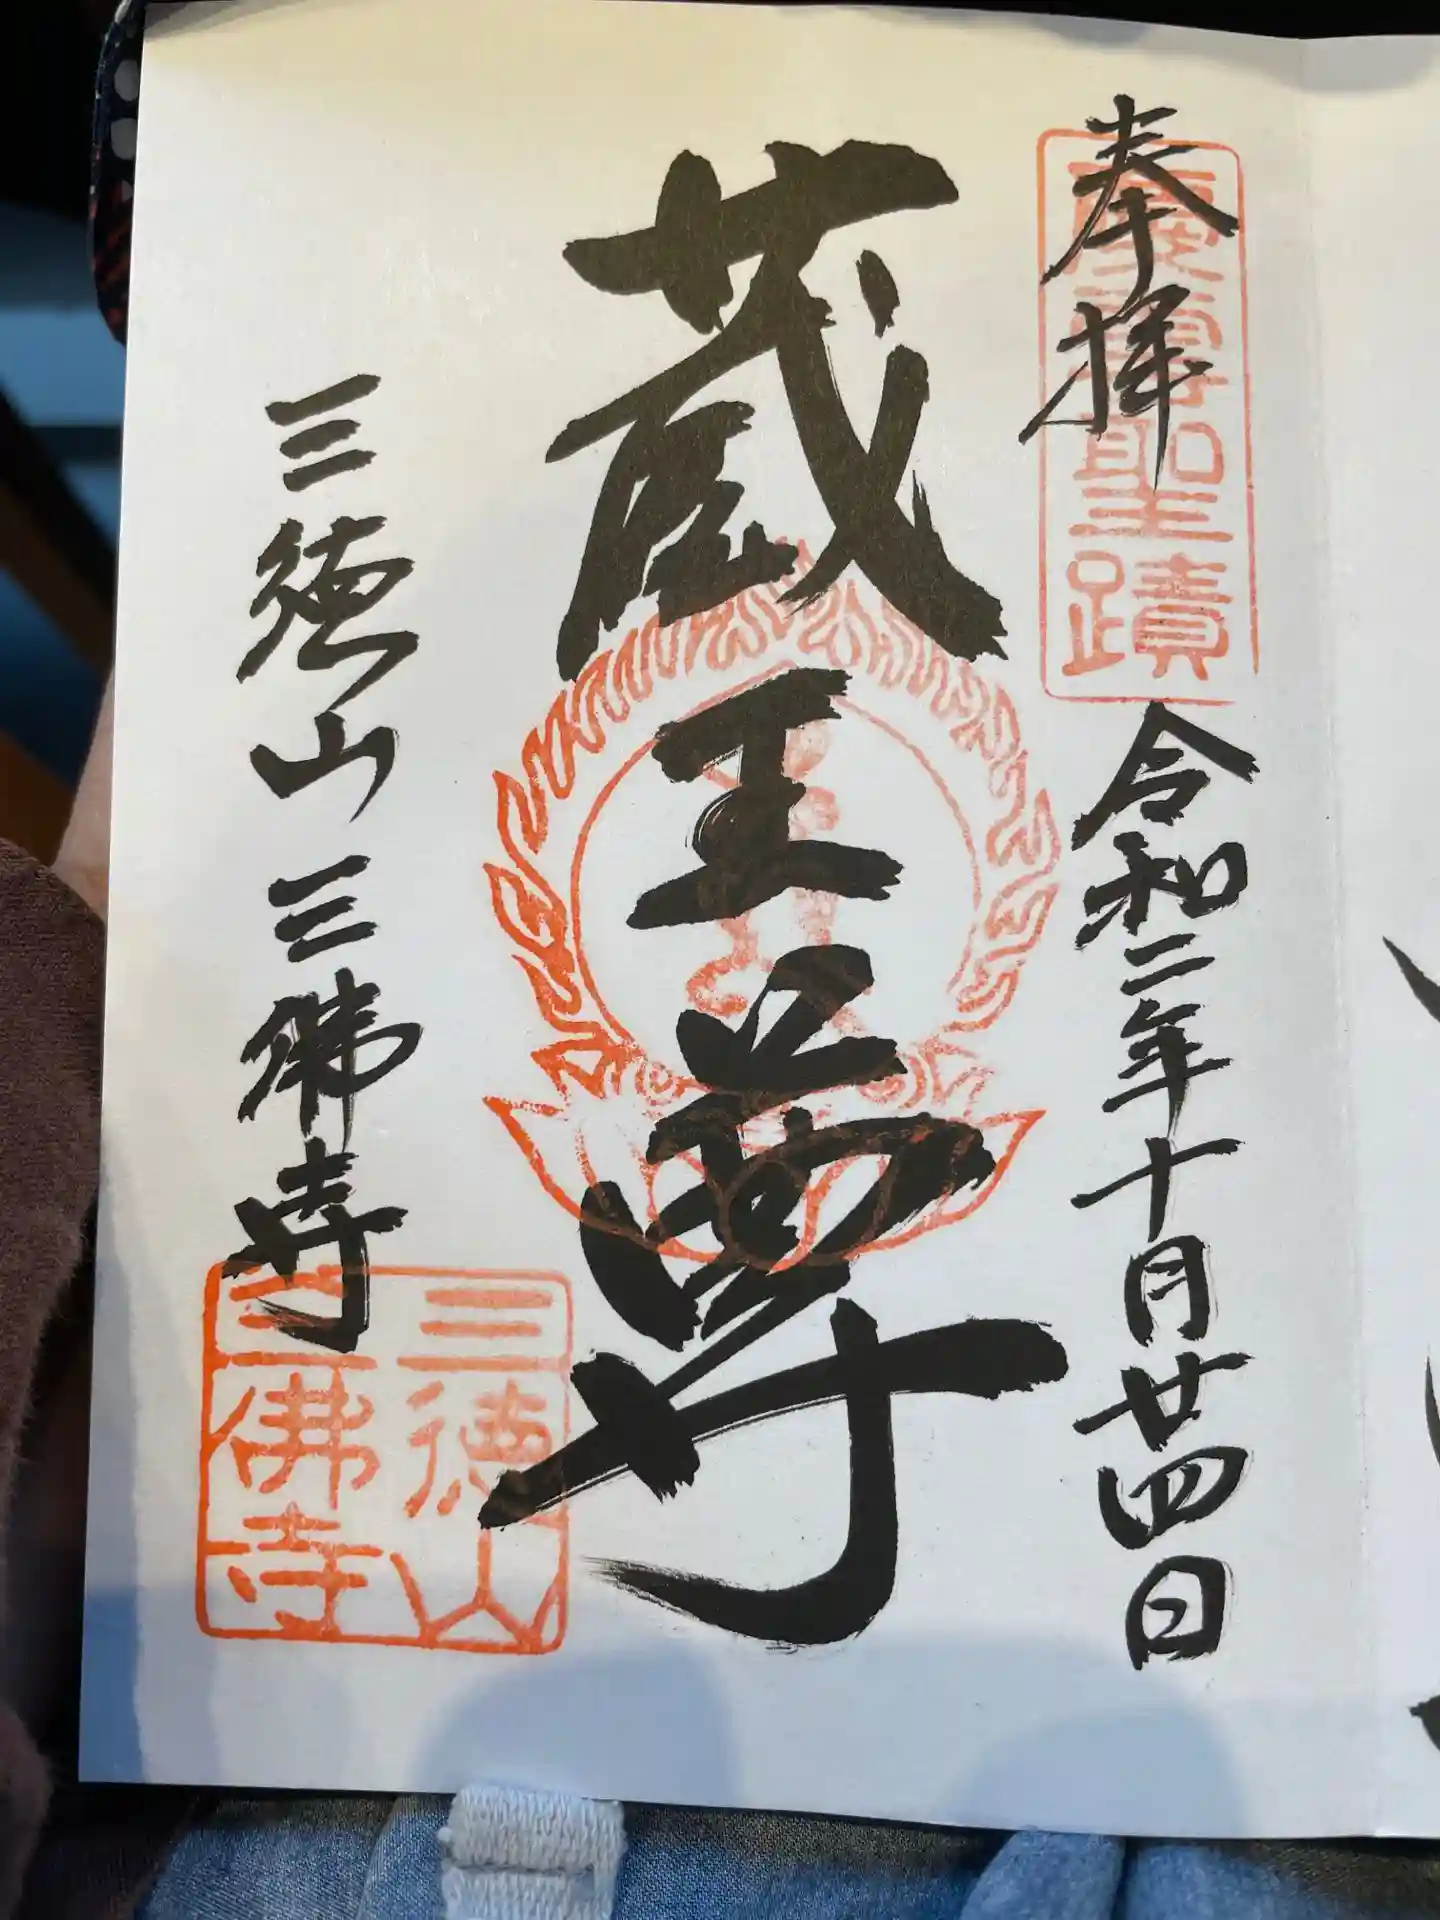 奉拝
慶雲聖蹟
令和二年十月廿四日
蔵王尊
三徳山三佛寺
三徳山
三佛寺